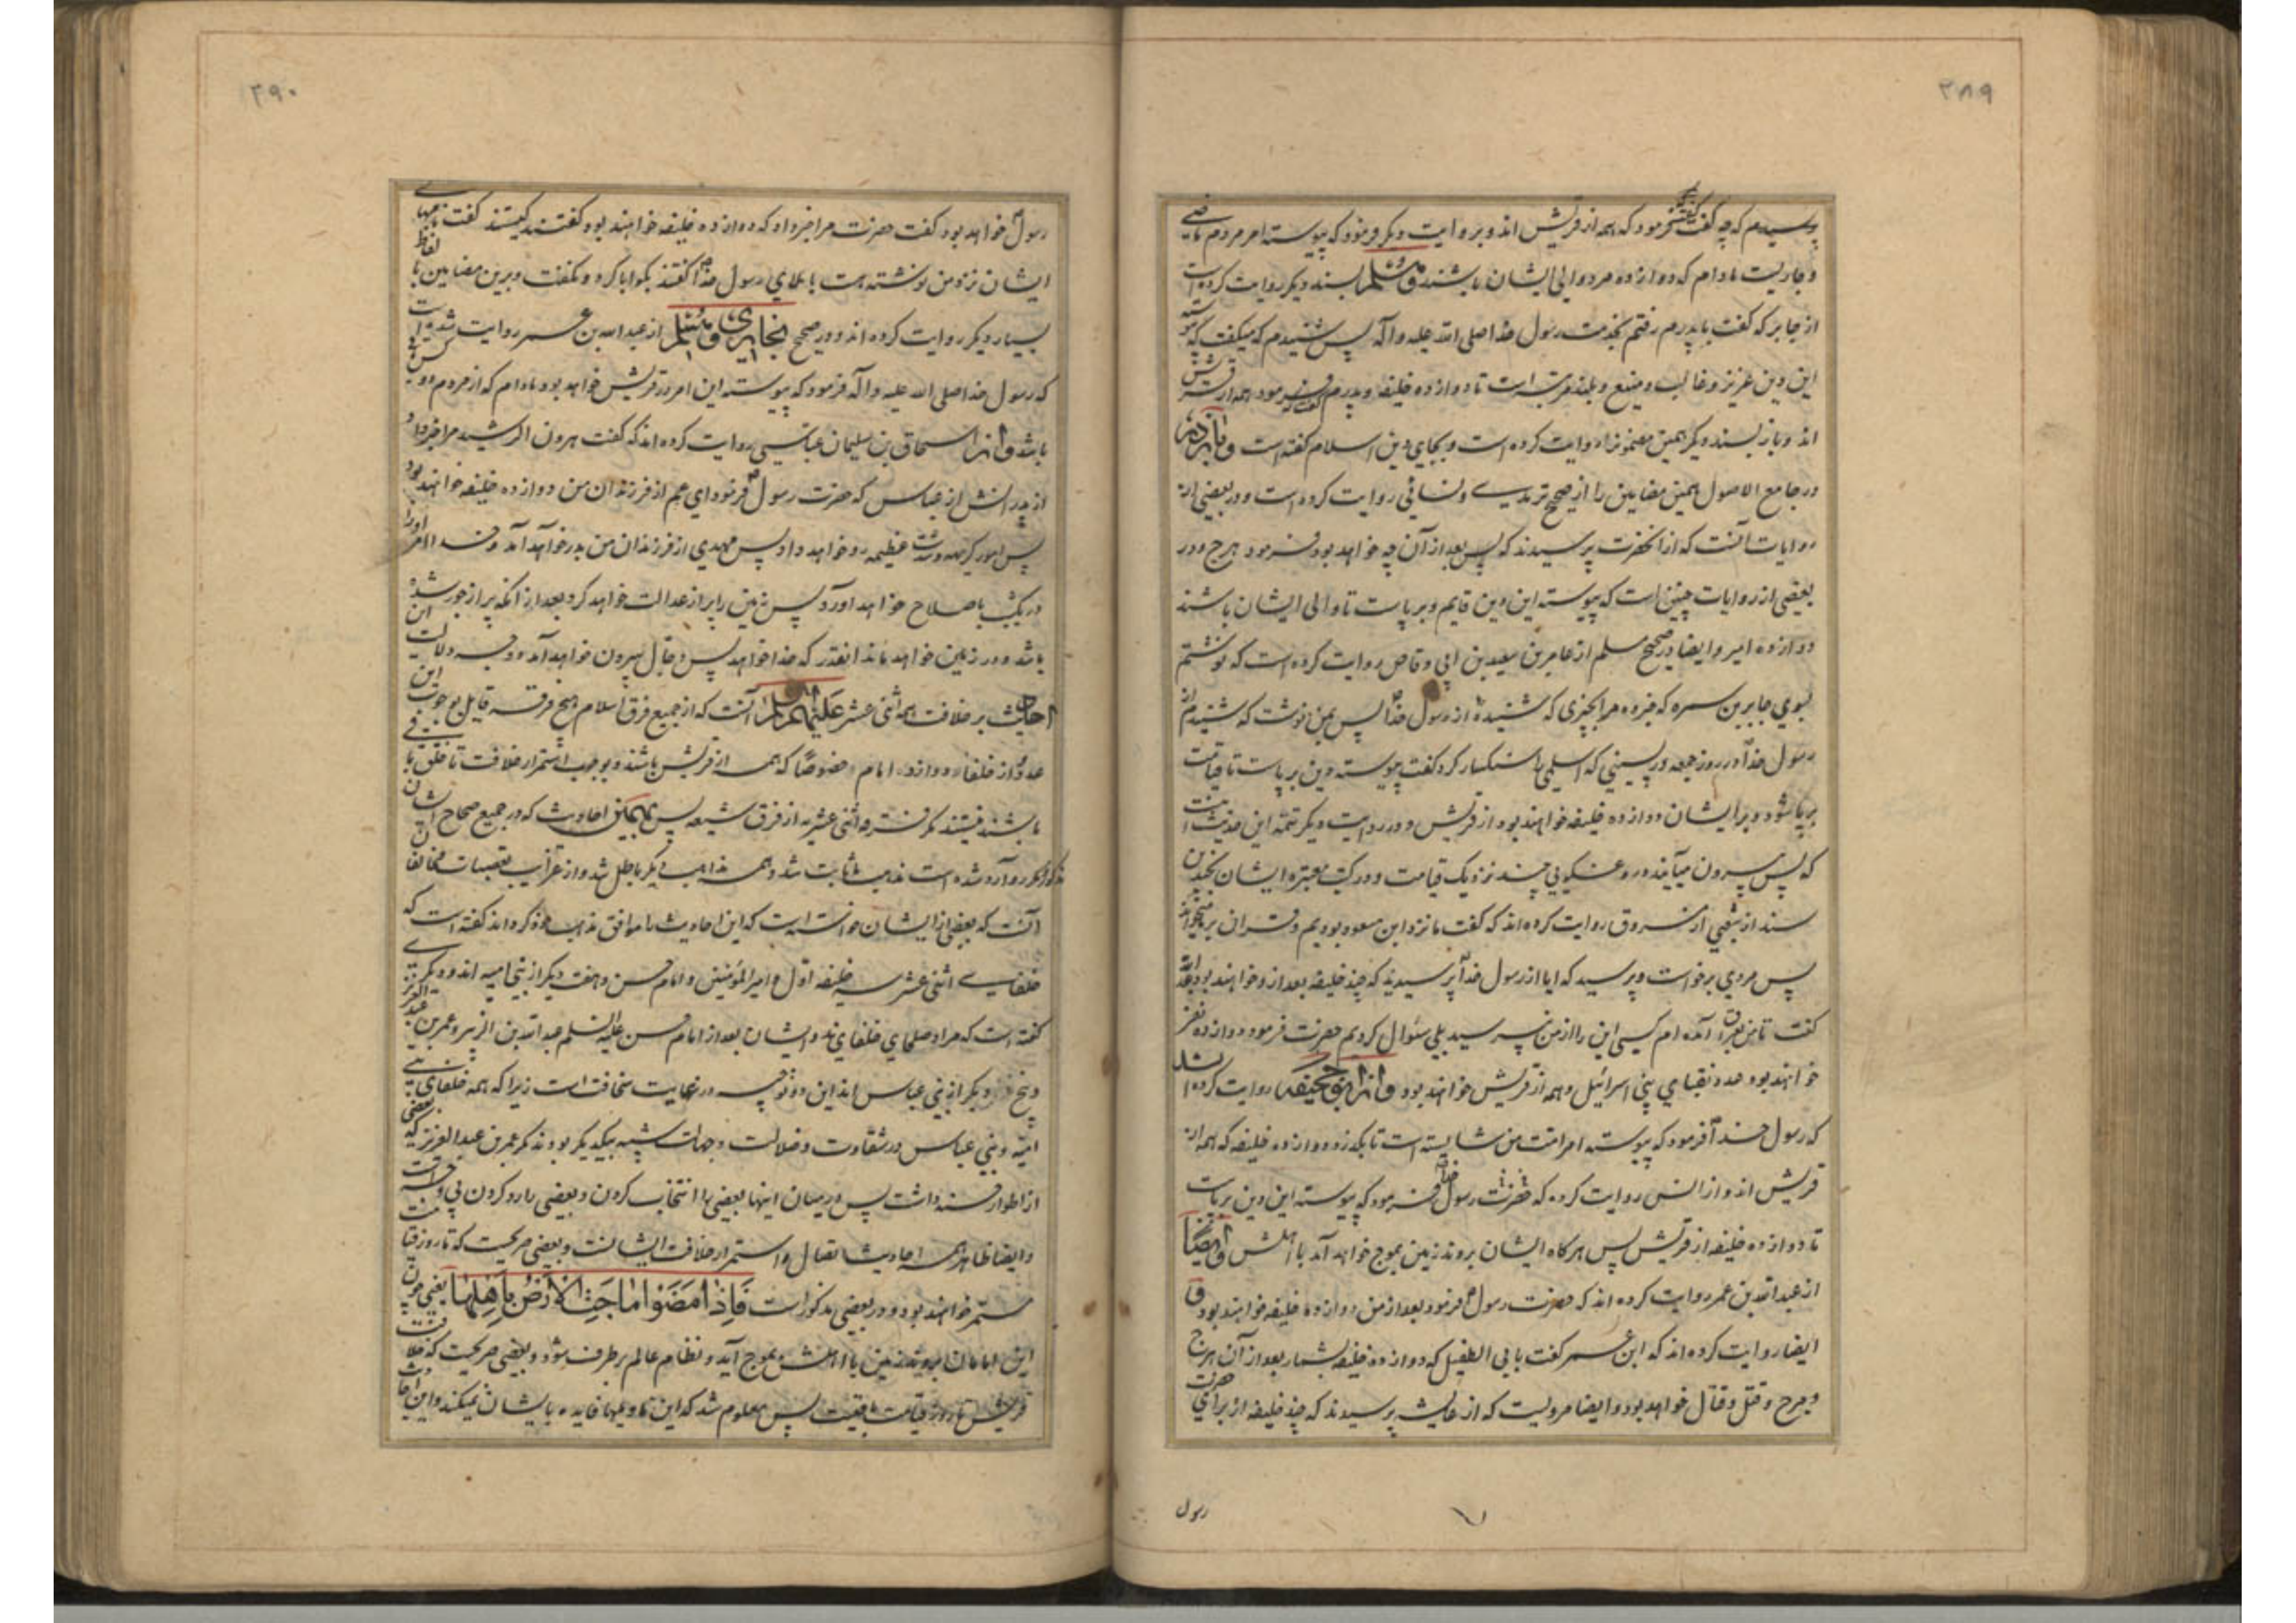 ۳۸۹
پرسیدم که چه گفت گفتند فرمود که همه از قریش اند و بروایت دیگر فرمود که پیوسته امر مردم ماضی
و جاریست مادام که دوازده مرد والی ایشان باشند و مسلم بسند دیگر روایت کرده است
از جابر که گفت با پدرم رفتم بخدمت رسول خدا صلی الله علیه و آله پس شنیدم که میگفت که پیوسته
این دین عزیز و غالب و منیع و بلند مرتبه است تا دوازده خلیفه و پدرم گفت فرمود همه از قریش
اند و باز بسند دیگر همین مضمونرا روایت کرده است و بجای دین اسلام گفته است و باز
در جامع الاصول همین مضامین را از صحیح ترمدی و نسائی روایت کرده است و در بعضی از
روایات آنست که از آنحضرت پرسیدند که پس بعد از آن چه خواهد بود فرمود هرج و در
بعضی از روایات چنین است که پیوسته این دین قایم و برپاست تا والی ایشان باشند
دوازده امیر و ایضا در صحیح مسلم از عامر بن سعد بن ابی وقاص روایت کرده است که نوشتم
بسوی جابر بن سمره که خبر ده مرا بچیزی که شنیدهٔ از رسول خدا پس بمن نوشت که شنیدم از
رسول خدا در روز جمعه در پسینی که اسلمی را سنکسار کرد گفت پیوسته دین برپاست تا قیامت
برپا شود و بر ایشان دوازده خلیفه خواهند بود از قریش و در روایت دیگر تتمهٔ این حدیث اینست
که پس بیرون میآیند دروغگویی چند نزدیک قیامت و در کتب معتبره ایشان بچندین
سند از شعبی از مسروق روایت کرده اند که گفت ما نزد ابن مسعود بودیم و قرآن بر ما میخواند
پس مردی برخواست و پرسید که ایا از رسول خدا پرسیدید که چند خلیفه بعد از او خواهند بود عبدالله
گفت تا من بعراق آمده ام کسی این را از من نپرسید بلی سئوال کردیم حضرت فرمود دوازده نفر
خواهند بود عدد نقبای بنی اسرائیل و همه از قریش خواهند بود و از ابو جحیفه روایت کرده اند
که رسول خدا فرمود که پیوسته امر امت من شایسته است تا بگذرد دوازده خلیفه که همه از
قریش اند و از انس روایت کرده که حضرت رسول خدا فرمود که پیوسته این دین برپاست
تا دوازده خلیفه از قریش پس هرگاه ایشان بروند زمین بموج خواهد آمد با اهلش و ایضا
از عبدالله بن عمر روایت کرده اند که حضرت رسول فرمود بعد از من دوازده خلیفه خواهند بود و
ایضا روایت کرده اند که ابن عمر گفت بابی الطفیل که دوازده خلیفه بشمار بعد از آن هرج
و مرج و قتل و قتال خواهد بود و ایضا مرویست که از عایشه پرسیدند که چند خلیفه از برای حضرت
رسول
۳۹۰
رسول خواهد بود گفت حضرت مرا خبر داد که دوازده خلیفه خواهند بود گفتند کیستند گفت نامهای
ایشان نزد من نوشته هست باملای رسول خدا گفتند بگو ابا کرد و نگفت و برین مضامین بالفاظ
بسیار دیگر روایت کرده اند و در صحیح بخاری و مسلم از عبدالله بن عمر روایت شده است
که رسول خدا صلی الله علیه و آله فرمود که پیوسته این امر در قریش خواهد بود مادام که از مردم دو کس باقی
باشد و از اسحاق بن سلیمان عباسی روایت کرده اند که گفت هرون الرشید مرا خبر داد
از پدرانش از عباس که حضرت رسول فرمود ای عم از فرزندان من دوازده خلیفه خواهند بود
پس امور کریهه و شدت عظیمه رو خواهد داد پس مهدی از فرزندان من بدر خواهد آمد و خدا امر او را
در یکشب باصلاح خواهد آورد پس زمین را پر از عدالت خواهد کرد بعد از آنکه پر از جور شده
باشد و در زمین خواهد ماند آنقدر که خدا خواهد پس دجال بیرون خواهد آمد و وجه دلالت این
احادیث بر خلافت ائمه اثنی عشر علیهم السلام آنست که از جمیع فرق اسلام هیچ فرقه قایل بوجوب این
عدد از خلفا و دوازده امام خصوصًا که همه از قریش باشند و بوجوب استمرار خلافت تا خلق باقی
باشند نیستند مگر فرقه اثنی عشریه از فرق شیعه پس بهمین احادیث که در جمیع صحاح ایشان
مذکور و وارد شده است مذهب ما ثابت شد و همه مذاهب دیگر باطل شد و از غرائب تعصبات مخالفان
آنست که بعضی از ایشان خواسته است که این احادیث را موافق مذاهب خود گرداند گفته است که
خلفای اثنی عشر سه خلیفه اول و امیرالمؤمنین و امام حسن و هفت دیگر از بنی امیه اند و دیگری
گفته است که مراد صلحای خلفای اند و ایشان بعد از امام حسن علیه السلم عبدالله بن الزبیر و عمر بن عبدالعزیز
و پنج نفر دیگر از بنی عباس اند این دو توجیه در نهایت سخافت است زیرا که همه خلفای بنی
امیه و بنی عباس در شقاوت و ضلالت و جهات شبیه بیکدیگر بودند مگر عمر بن عبدالعزیز که بعضی
از اطوارش داشت پس درمیان اینها بعضی را انتخاب کردن و بعضی را رد کردن بی وجه است
و ایضا ظاهر همه احادیث اتصال و استمرار خلافت ایشانست و بعضی صریحست که تا روز قیامت
مستمر خواهند بود و در بعضی مذکور است فَاِذَا مَضَوْا مَاجَتِ الْاَرْضُ بِاَهْلِهَا یعنی چون
این امامان بروند زمین با اهلش بموج آید و نظام عالم برطرف شود و بعضی صریحست که خلافت
قریش تا روز قیامت باقیست پس معلوم شد که این تاویلها فایده بایشان نمیکند و این احادیث